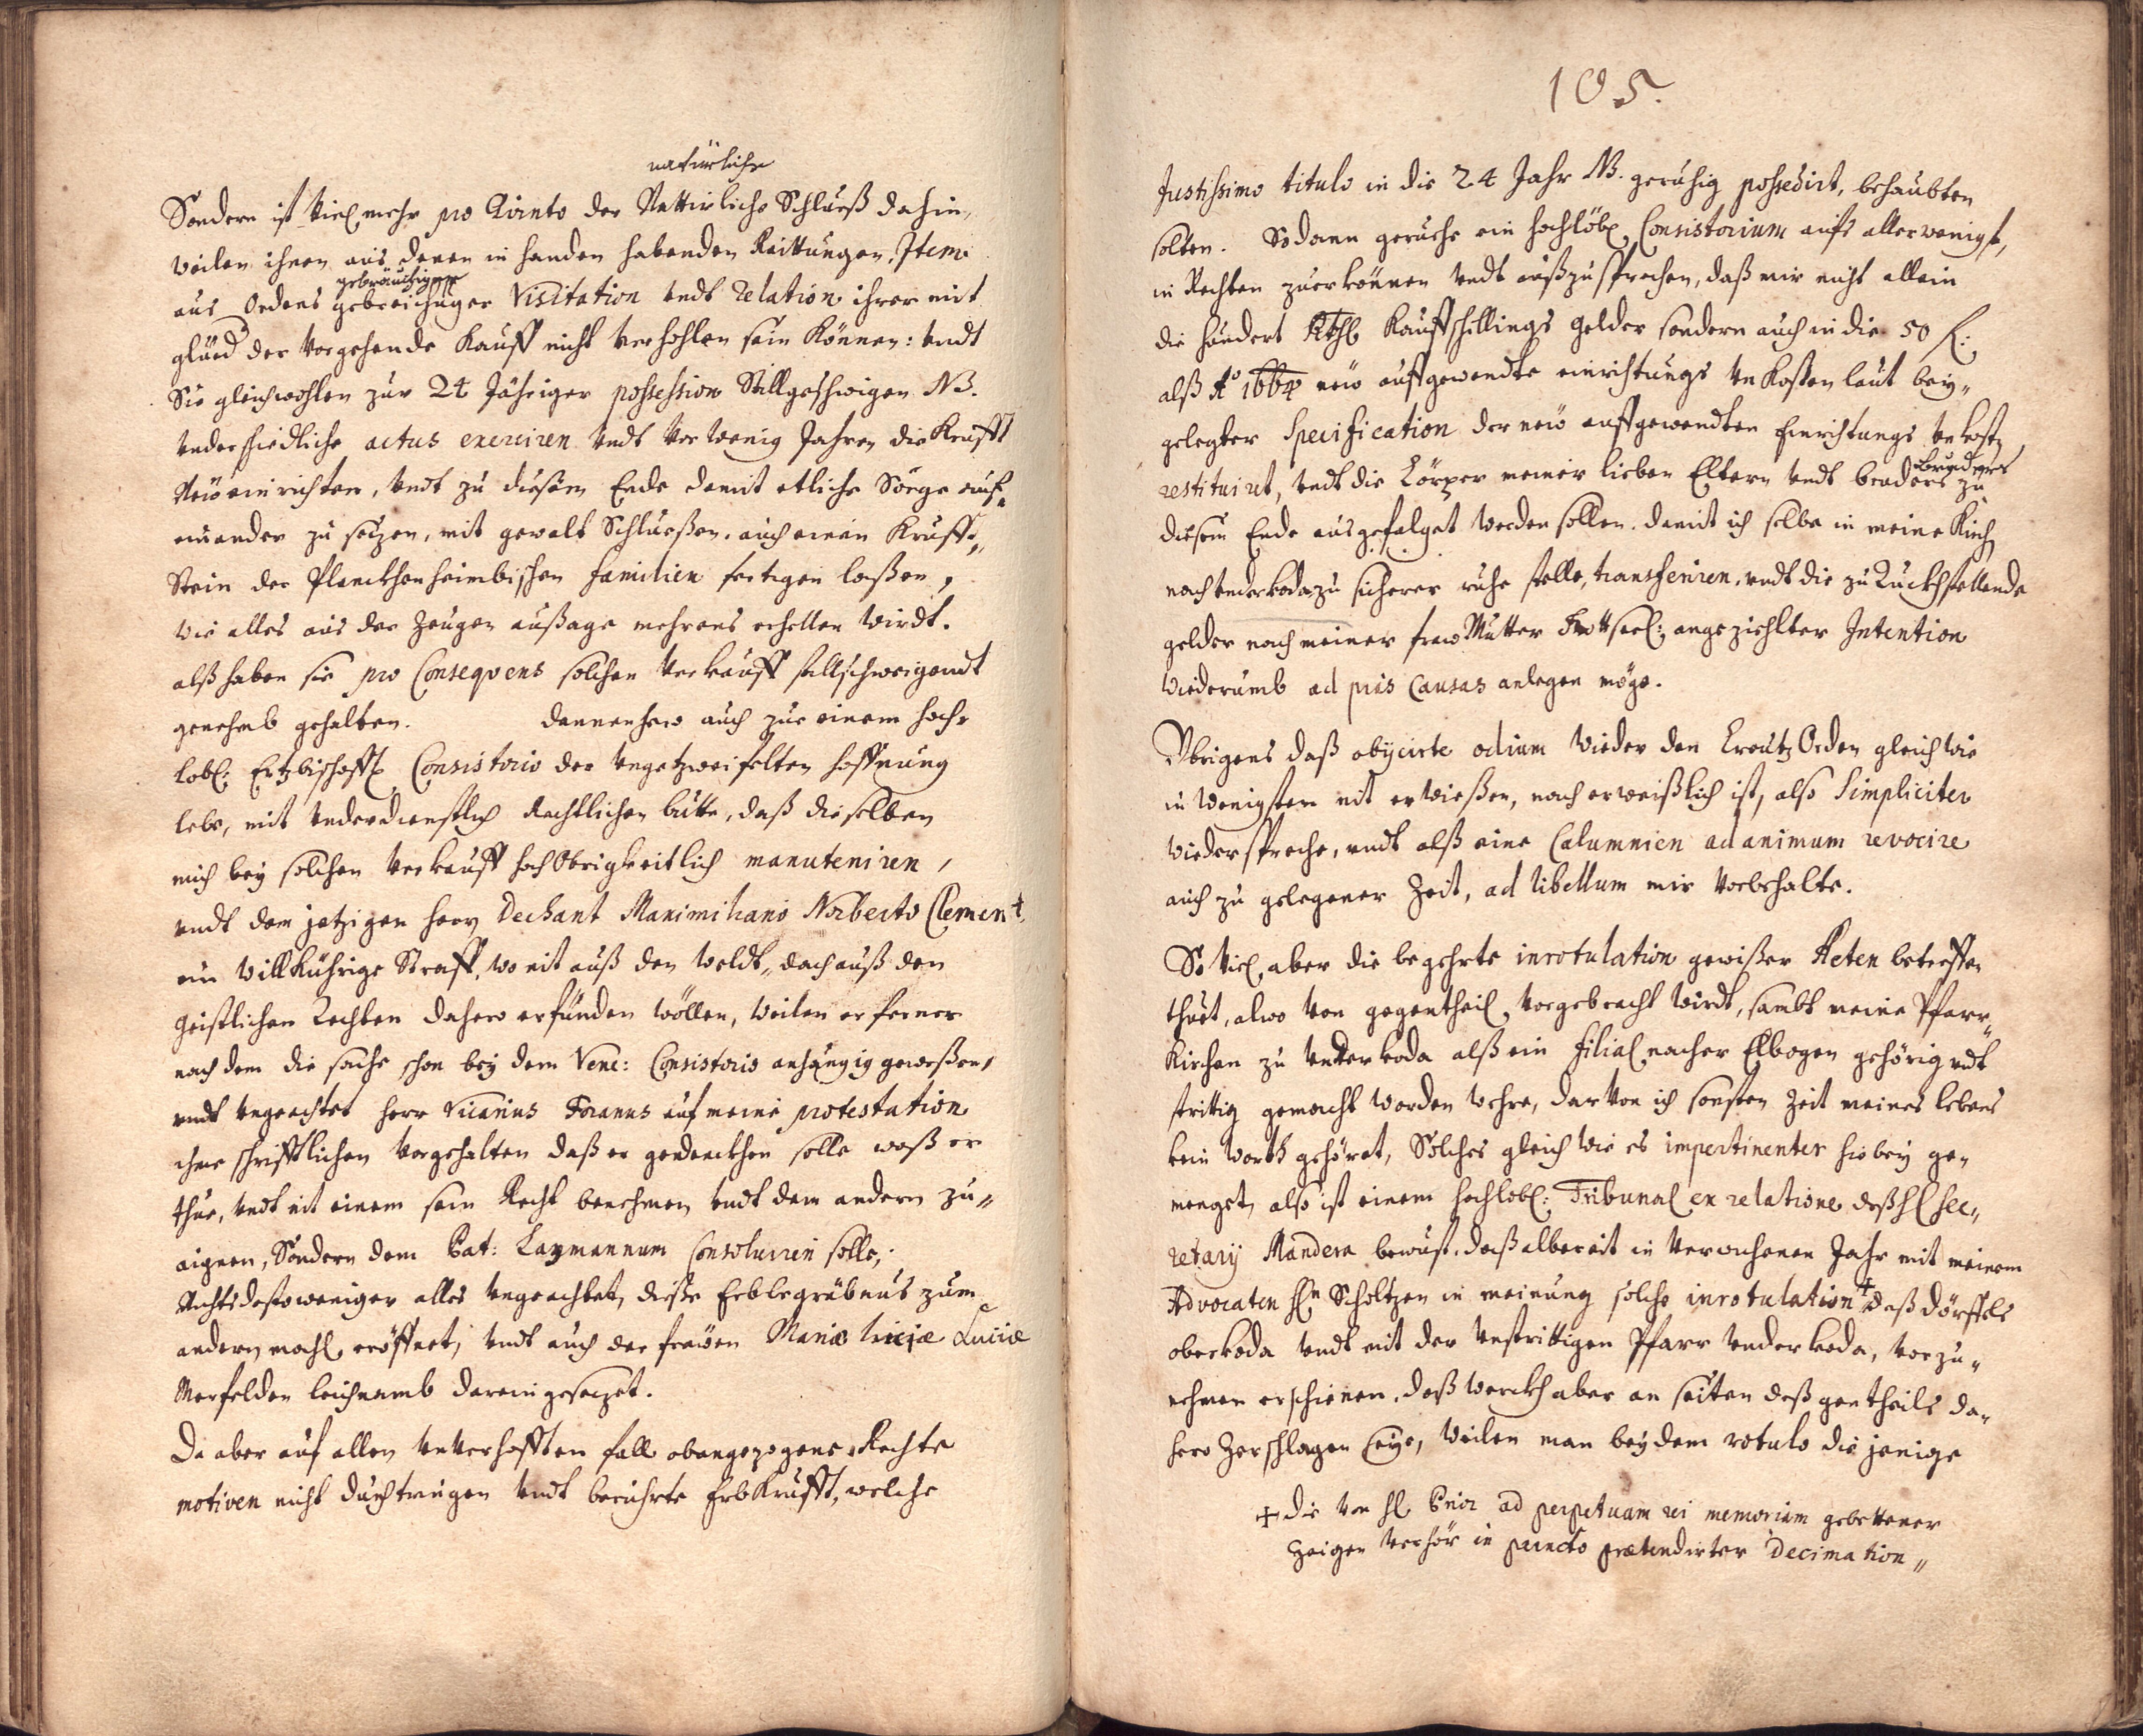 natürliche
Sondern ist Viel mehr pro Qvinto der Nattirliche Schlueß dahin,
weilen ihnen aus denen in handen habenden Raittungen, Item
gebräuchiger
aus Ordens gebreichiger Visitation undt relation ihrer mit
glüed der Vorgehende Kauff nicht verhohlen sein können: undt
Sie gleichwohlen zur 24 Jähriger possession Stillgeschwigen NB.
underschiedliche actus exerciren undt vor wenig Jahren die Krufft
Neüo einrichten, undt zu diesem Ende damit etliche Särge auf„
einander zu setzen, mit gewalt Schlueßen, auch einen Krufft„
Stein der Planckhenheimbischen familien fertigen laßen,
wie alles aus der Zeugen außage mehrers erhellen wirdt.
alß haben sie pro Conseqvens solchen Verkauff stillschweigendt
genehmb gehalten. dannenhero auch zue einem hoch„
lobl: Ertzbischoffl Consistorio der ungetzweifelten hoffnung
lebe, mit underdienstlich Rechtlicher bitte, daß dieselben
mich bey solchen Verkauff hochObrigkeitlich manuteniren,
undt dem jetzigen herrn Dechant Maximiliano Norberto Clement
ein Villkührige Straff, wo nit auß den weldt„ doch auß den
Geistlichen Rechten dahero erfünden wöllen, weilen er ferner
nach dem die sache schon bey dem Vene: Consistorio anhängig geweßen,
undt ungeachtet herr Vicarius Foranus auf meine protestation
ihme schrifftlichen vorgehalten daß er gedenckhen solle waß er
thue, undt nit einem sein Recht benehmen undt dem andern zu„
aignen, Sondern dem Pat: Laymannum Consoluiren solle,
Nichtsdestoweniger alles ungeachtet, dieße Erbbegräbnus zum
andern mahl eröffnet, undt auch der frauen Mariæ Luciæ
Merfelden leichnamb darein gesetzet.
Da aber auf allen unverhofften fall obangezogene Rechts
motiven nicht durchtringen undt berührte ErbKrufft, welche
105.
Justissimo titulo in die 24 Jahr NB. geruhig possedirt, behaubten
solten. Sodann geruhe ein hochlöbl Consistorium aufs allerwenigste,
in Rechten zuerkönnen undt außzusprechen, daß mir nicht allein
die hundert Rthl Kauffschillings gelder sondern auch in die 50 f:
alß Aº 1664 neüo auffgewendte einrichtungs unkosten laut bey„
gelegter Specification der neüo auffgewendten Einrichtungs unkosten
restituiret, undt die Cörper meiner lieben Eltern undt beaders Bruders zu
diesem Ende ausgefolget werden sollen. damit ich selbe in meine Kirch
nach underkoda zu sicherer ruhe stelle, transferiren, undt die zuruckhstellende
gelder nach meiner fraw Mutter Gottseel: angeziehlter Intention
wiederumb ad pias Causas anlegen möge.
Übrigens daß obijcirte odium wieder den Creutz Orden gleich wie
in wenigsten nit erwießen, noch erweißlich ist, also Simpliciter
wiederspreche, undt alß eine Calumnien ad animum revocire
auch zu gelegener Zeit, ad libellum mir vorbehalte.
So Viel aber die begehrte inrotulation gewißer Acten betreffen
thuet, alwo von gegentheil vorgebracht wirdt, sambt meine Pfarr„
Kirchen zu Underkoda alß ein filial nacher Elbogen gehörig undt
strittig gemacht worden wehre, dar von ich sonsten Zeit meines lebens
kein worth gehöret, Solches gleich wie es impertinenter hiebey ge„
menget, also ist einem hochlobl: Tribunal ex relatione deß Hl Sec„
retarij Mandera bewust, daß albereit in verwichenen Jahr mit meinem
Advocaten Hn Scholtzen in meinung solche inrotulation + daß dörffels
oberkoda undt mit der unstrittigen Pfarr underkoda, vorzu„
nehmen erschienen, daß werckh aber an seiten deß gentheils da„
hero Zerschlagen seye, weilen man bey dem rotulo die jenige
+ die von Hl Prior ad perpetuam rei memoriam gebettener
Zeigen verhör in puncto prætendirter Decimation„